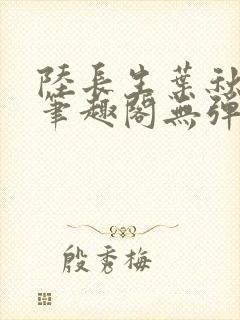 陸長生葉秋
筆趣閣無彈
殷秀梅